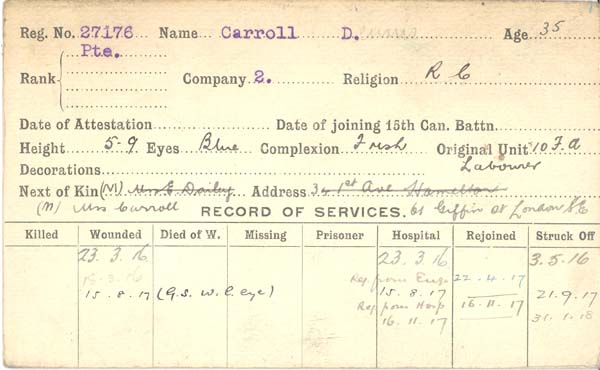 Reg. No. 27176 Name Carroll D. Age 35
Pte.
Rank Company 2. Religion R C
Date of Attestation Date of joining 15th Can. Battn.
Height 5-9 Eyes Blue Complexion Fresh Original Unit 10 F.A
Decorations Labourer
Next of Kin (M) Mrs E. Dailey Address 34 1st Ave Hamilton
(M) Mrs Carroll RECORD OF SERVICES. 61 Giffin St London S.E
Killed Wounded Died of W. Missing Prisoner Hospital Rejoined Struck Off
23.3.16 23.3 16 3.5.16
15-3-16 Reg from Eng 22.4.17
15.8.17 (G.S.W. L. eye) 15.8.17 21.9.17
Reg from Hosp 16.11.17
16.11.17 31.1.18